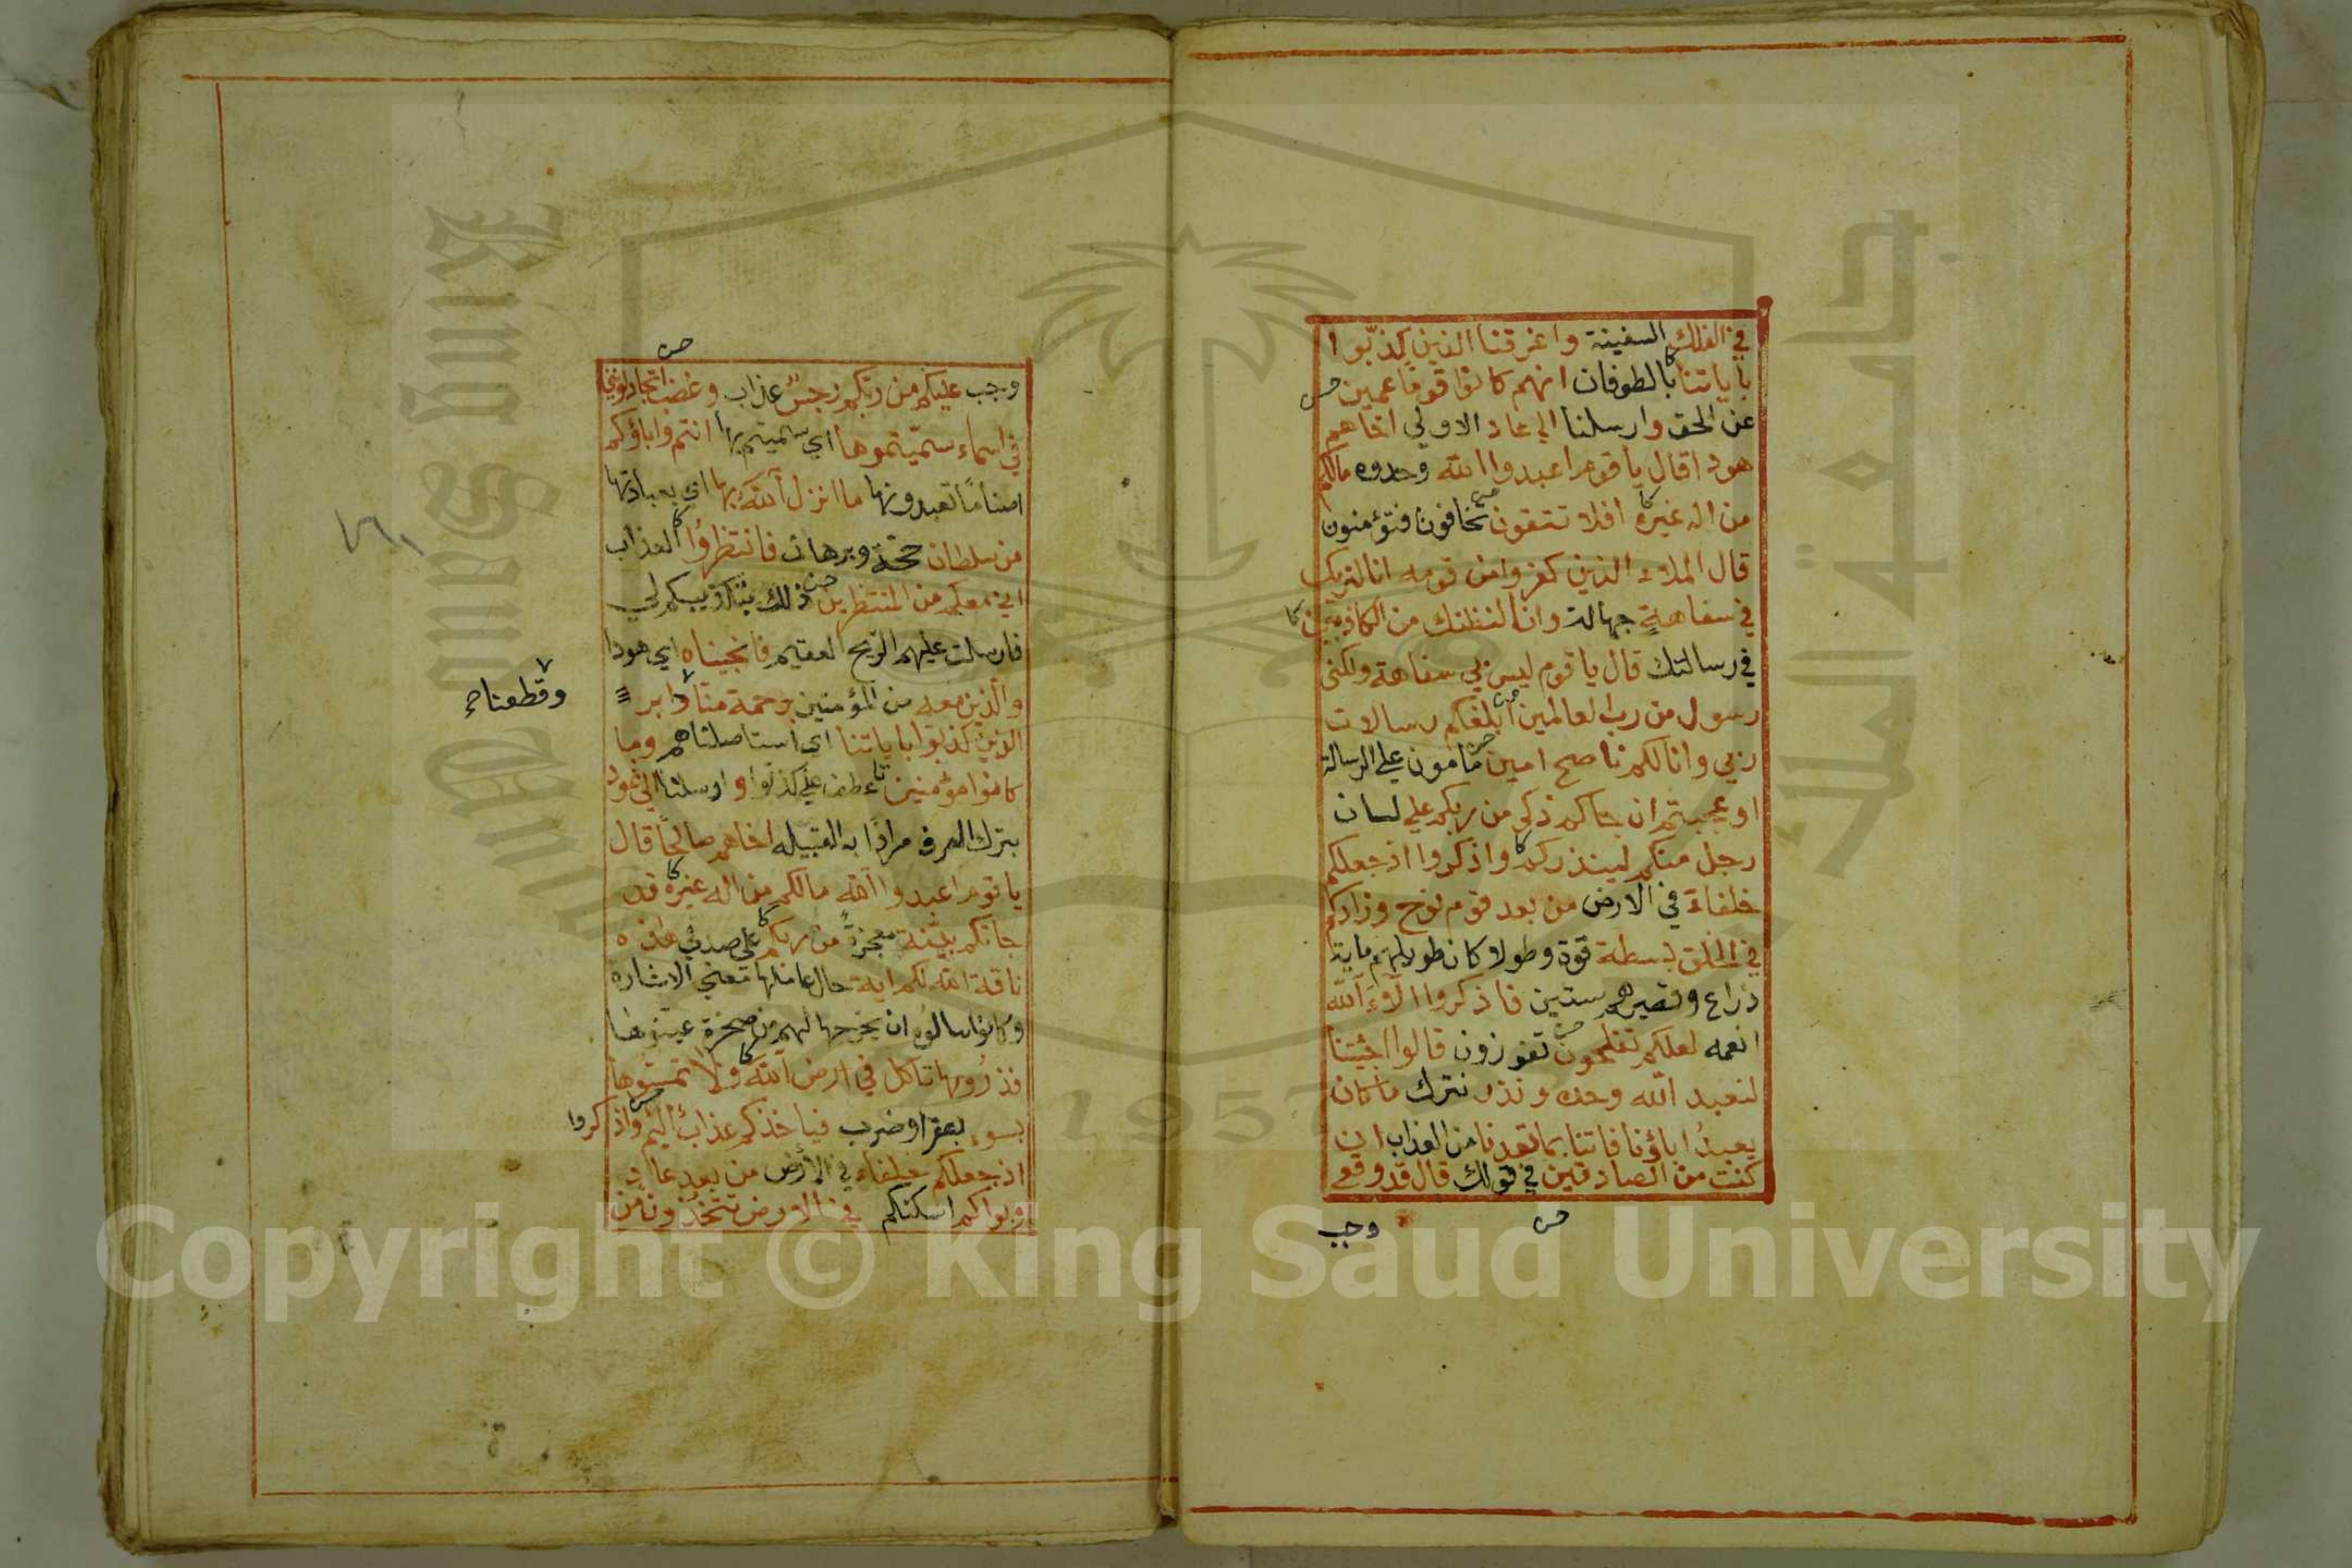 في الفلك السفينة واغرقنا الذين كذبوا
باياتنا بالطوفان انهم كانوا قوما عمين
عن الحق وارسلنا الي عاد الاولي اخاهم
هودا قال يا قوم اعبدوا الله وحدوه مالكم
من اله غيره افلا تتقون تخافون فتؤمنون
قال الملاء الذين كفروا من قومه انا لنريك
في سفاهةٍ جهالة وانا لنظنك من الكاذبين
في رسالتك قال يا قوم ليس بي سفاهة ولكني
رسول من رب العالمين ابلغكم رسالات
ربي وانا لكم ناصح امين مامون علي الرسالة
او عجبتم ان جاكم ذكر من ربكم علي لسان
رجل منكم لينذركم واذكروا اذ جعلكم
خلفاء في الارض من بعد قوم نوح وزادكم
في الخلق بسطة قوة وطولا كان طويلهم ماية
ذراع وقصيرهم ستين فاذكروا الآء الله
انعمه لعلكم تفلحون تفوزون قالوا اجئتنا
لنعبد الله وحده ونذر نترك ما كان
يعبدُ اباؤنا فاتنا بما تعدنا من العذاب ان
كنت من الصادقين في قولك قال قد وقع
وجب
وجب عليكم من ربكم رجسٌ عذاب وغضب اتجادلونني
في اسماء سمّيتموها اي سميتم بها انتم واباؤكم
اصناماً تعبدونها ما انزل الله بها اي بعبادتها
من سلطان حجة وبرهان فانتظرُوا العذاب
اني معكم من المنتظرين ذلك بتكذيبكم لي
فارسلت عليهم الريح العقيم فانجيناه اي هودا
والذين معه من المؤمنين برحمة منا دابر
وقطعنا
الذين كذبوا باياتنا اي استاصلناهم وما
كانوا مؤمنين عطف علي كذبوا وارسلنا الي ثمود
بترك الصرف مرادا به القبيله اخاهم صالحًا قال
يا قوم اعبدوا الله مالكم من اله غيره قد
جاتكم بيّنة معجزةٌ من ربكم علي صدقي هذه
ناقة الله لكم اية حال عاملها معني الاشاره
وكانوا سالوه ان يخرجها لهم من صخرة عينوها
فذرُوها تاكل في ارض الله ولا تمسّوها
بسوء بعقر او ضرب فياخذكم عذابٌ اليم واذكروا
اذ جعلكم خلفاء في الارض من بعد عاد
وبواكم اسكنكم في الارض تتخذون من
Copyright © King Saud University
King Saud University
جامعة الملك سعود
1957